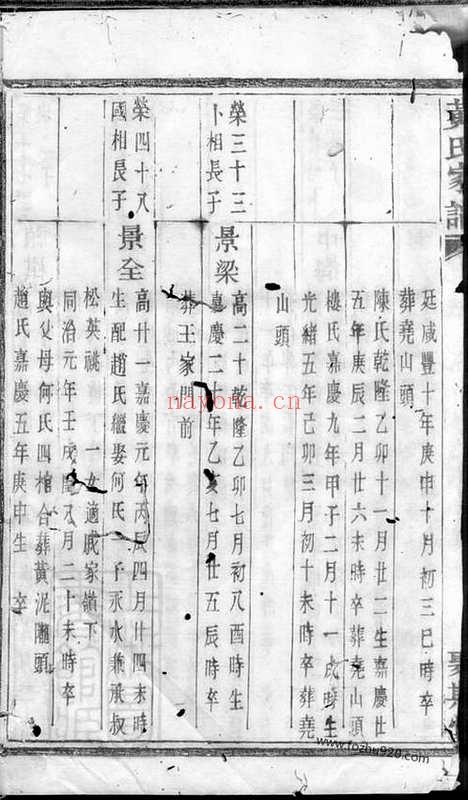 黃氏家譜
廷咸豐十年庚申十月初三巳時卒
葬堯山頭
陳氏乾隆乙卯十一月廿二生嘉慶廿
五年庚辰二月廿六未時卒葬堯山頭
樓氏嘉慶九年甲子二月十一戌時生
光緒五年己卯三月初十未時卒葬堯
山頭
榮三十三
卜相長子
景梁
高二十乾隆乙卯七月初八酉時生
嘉慶二十年乙亥七月廿五辰時卒
葬王家門前
榮四十八
國相長子
景全
高廿一嘉慶元年丙辰四月廿四未時
生配趙氏繼娶何氏一子永水兼承叔
松英祧下一女適戚家嶺下
同治元年壬戌八月二十未時卒
與父母何氏四棺合葬黃泥隴頭
趙氏嘉慶五年庚申生 卒
nayona.cn
www.fozhu920.com